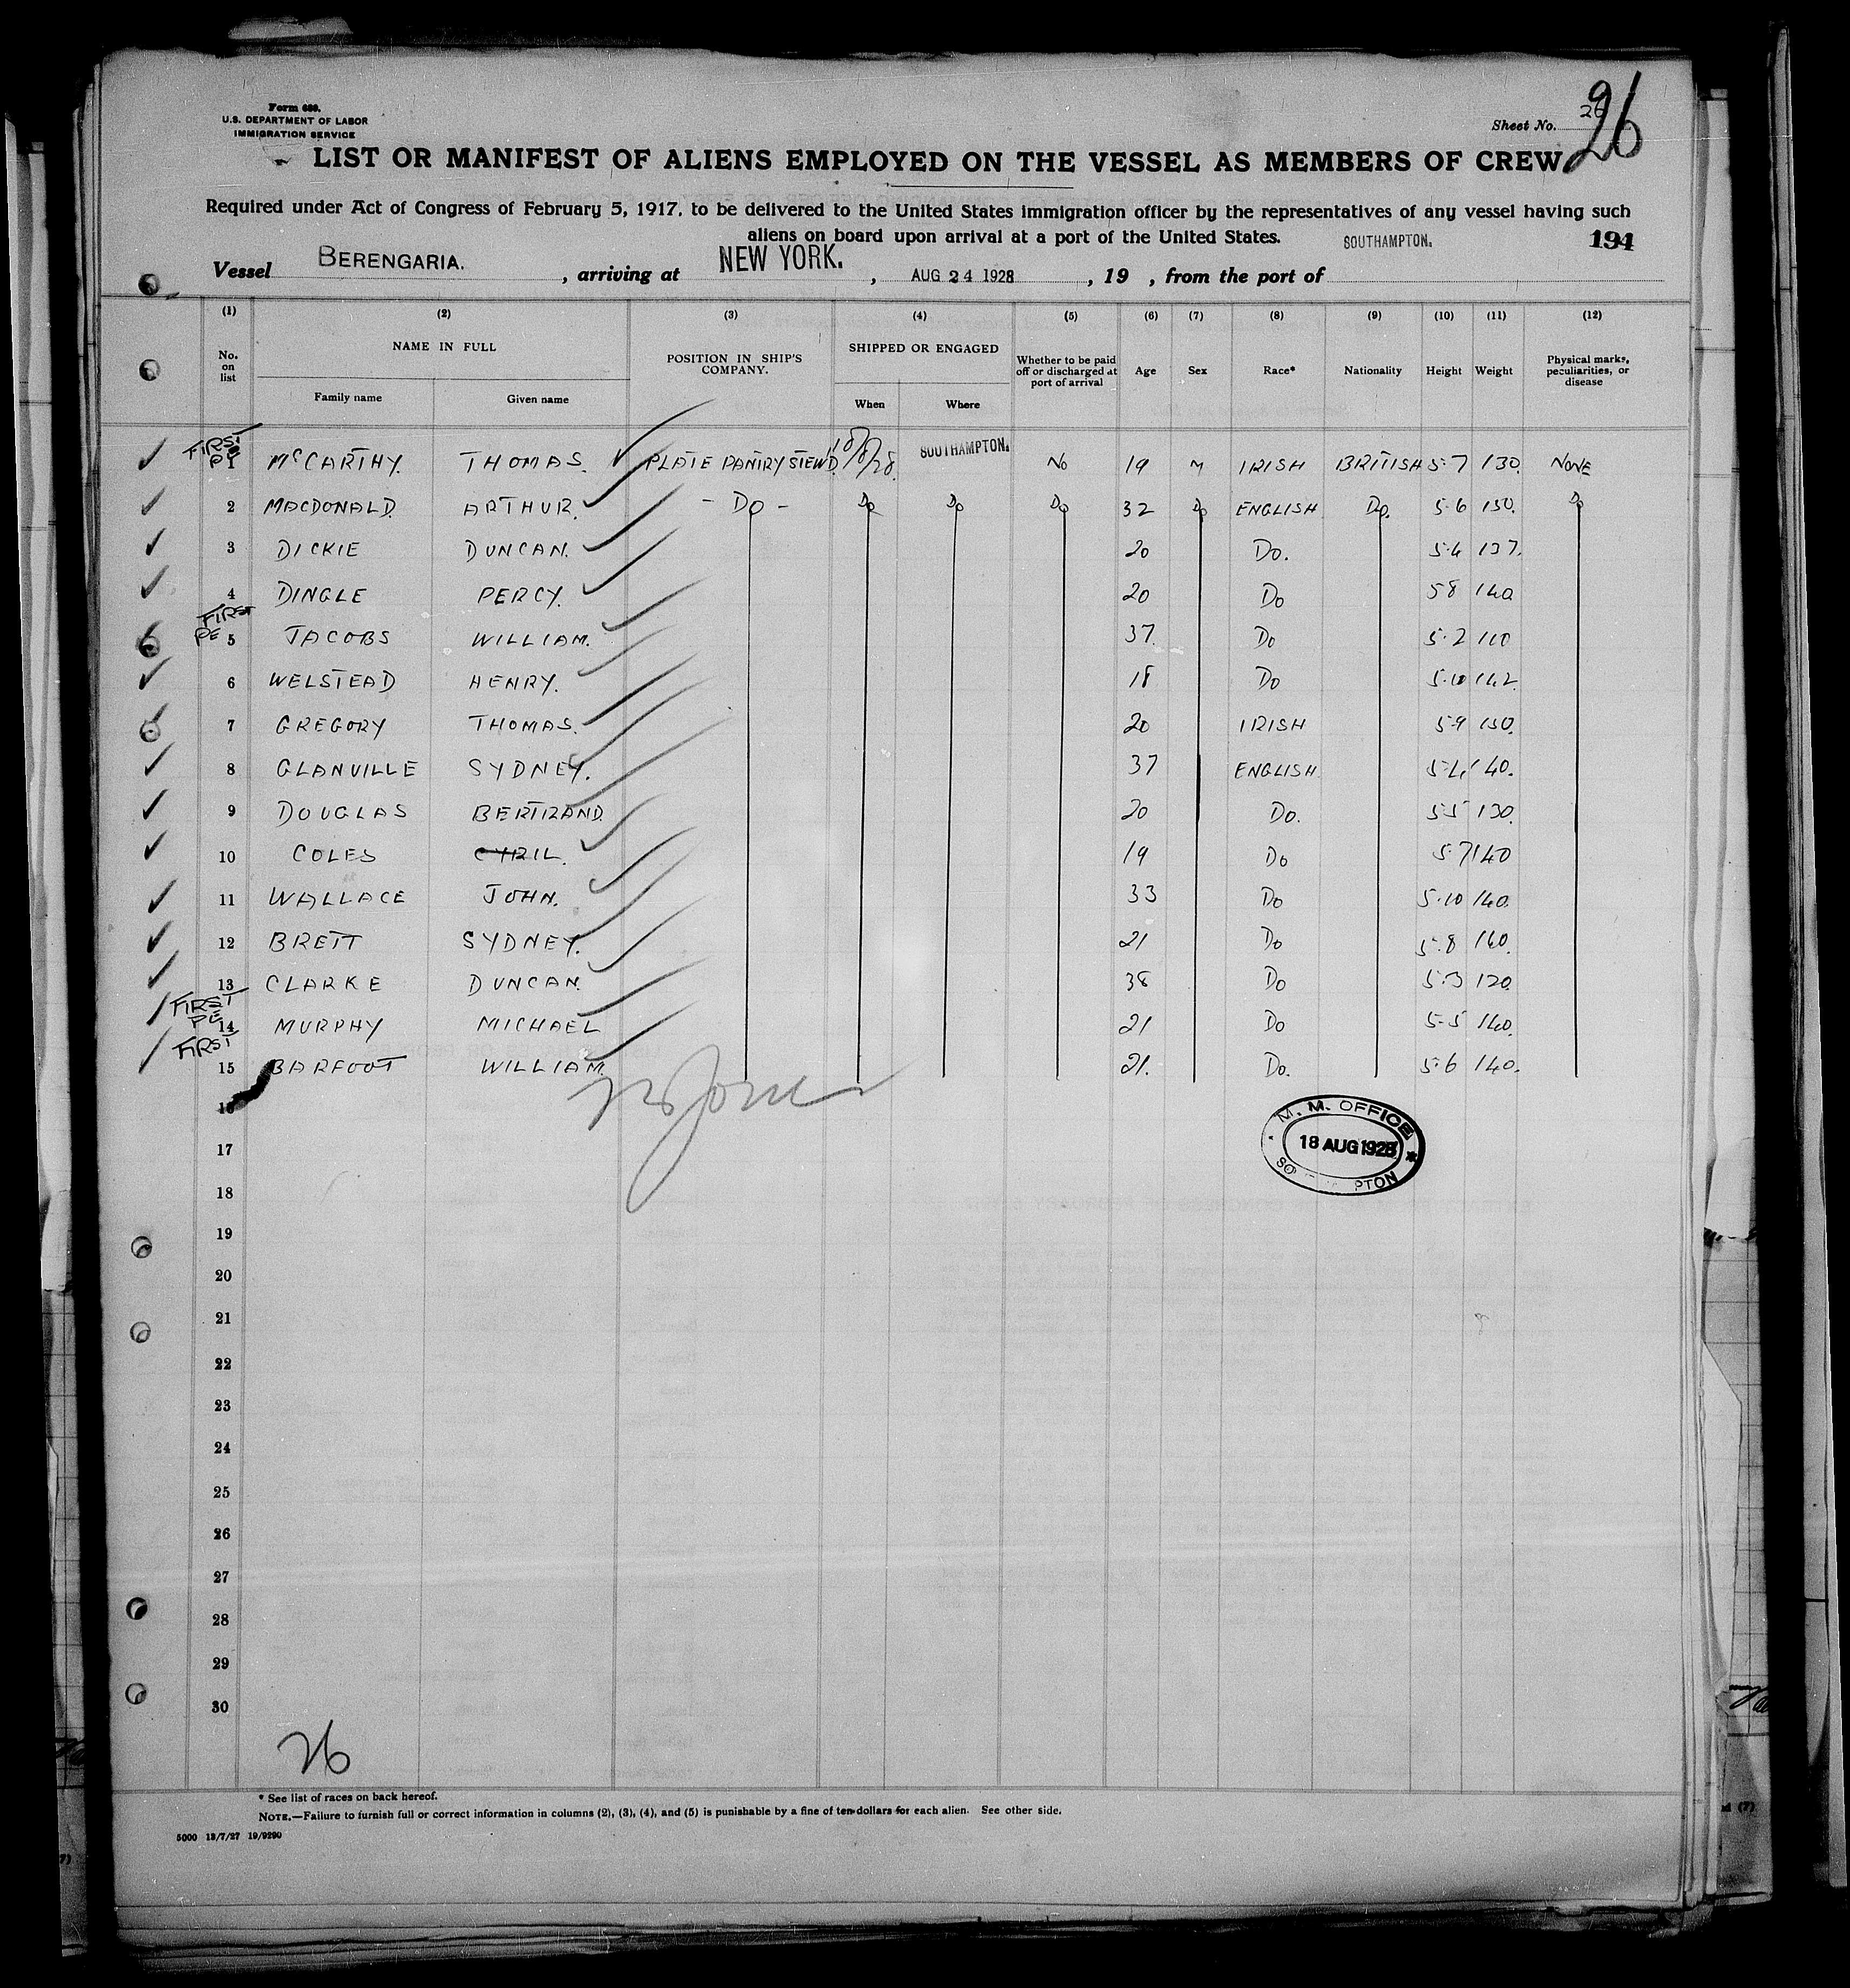 Form 689.
U.S. DEPARTMENT OF LABOR
IMMIGRATION SERVICE
Sheet No. 26
26
LIST OR MANIFEST OF ALIENS EMPLOYED ON THE VESSEL AS MEMBERS OF CREW
Required under Act of Congress of February 5, 1917, to be delivered to the United States immigration officer by the representatives of any vessel having such
aliens on board upon arrival at a port of the United States.
SOUTHAMPTON. 194
Vessel BERENGARIA. , arriving at NEW YORK. , AUG 24 1928 , 19 , from the port of
(1) (2) (3) (4) (5) (6) (7) (8) (9) (10) (11) (12)
No. on list NAME IN FULL POSITION IN SHIP'S COMPANY. SHIPPED OR ENGAGED Whether to be paid off or discharged at port of arrival Age Sex Race* Nationality Height Weight Physical marks, peculiarities, or disease
Family name Given name When Where
FIRST
1 McCARTHY. THOMAS. PLATE PANTRY STEWD. 18/8/28 SOUTHAMPTON. No 19 M IRISH BRITISH 5·7 130. NONE
2 MACDONALD. ARTHUR. - Do - Do Do Do 32 Do ENGLISH Do. 5·6 150. Do
3 DICKIE DUNCAN. 20 Do. 5·4 137.
4 DINGLE PERCY. 20 Do 5 8 140
FIRST
PE 5 JACOBS WILLIAM. 37. Do 5·2 110
6 WELSTEAD HENRY. 18 Do 5·10 142.
7 GREGORY THOMAS. 20 IRISH 5·9 150.
8 GLANVILLE SYDNEY. 37 ENGLISH. 5·4 140.
9 DOUGLAS BERTRAND. 20 Do. 5·5 130.
10 COLES CYRIL. 19 Do 5·7 140
11 WALLACE JOHN. 33 Do 5·10 140.
12 BRETT SYDNEY. 21 Do 5·8 160.
13 CLARKE DUNCAN. 38 Do 5·3 120.
FIRST
PE 14 MURPHY MICHAEL 21 Do 5·5 140.
FIRST
15 BARFOOT WILLIAM. 21. Do. 5·6 140.
16
M. M. OFFICE
18 AUG 1928
17
18
19
20
21
22
23
24
25
26
27
28
29
30
26
* See list of races on back hereof.
NOTE.—Failure to furnish full or correct information in columns (2), (3), (4), and (5) is punishable by a fine of ten dollars for each alien. See other side.
5000 13/7/27 19/9290